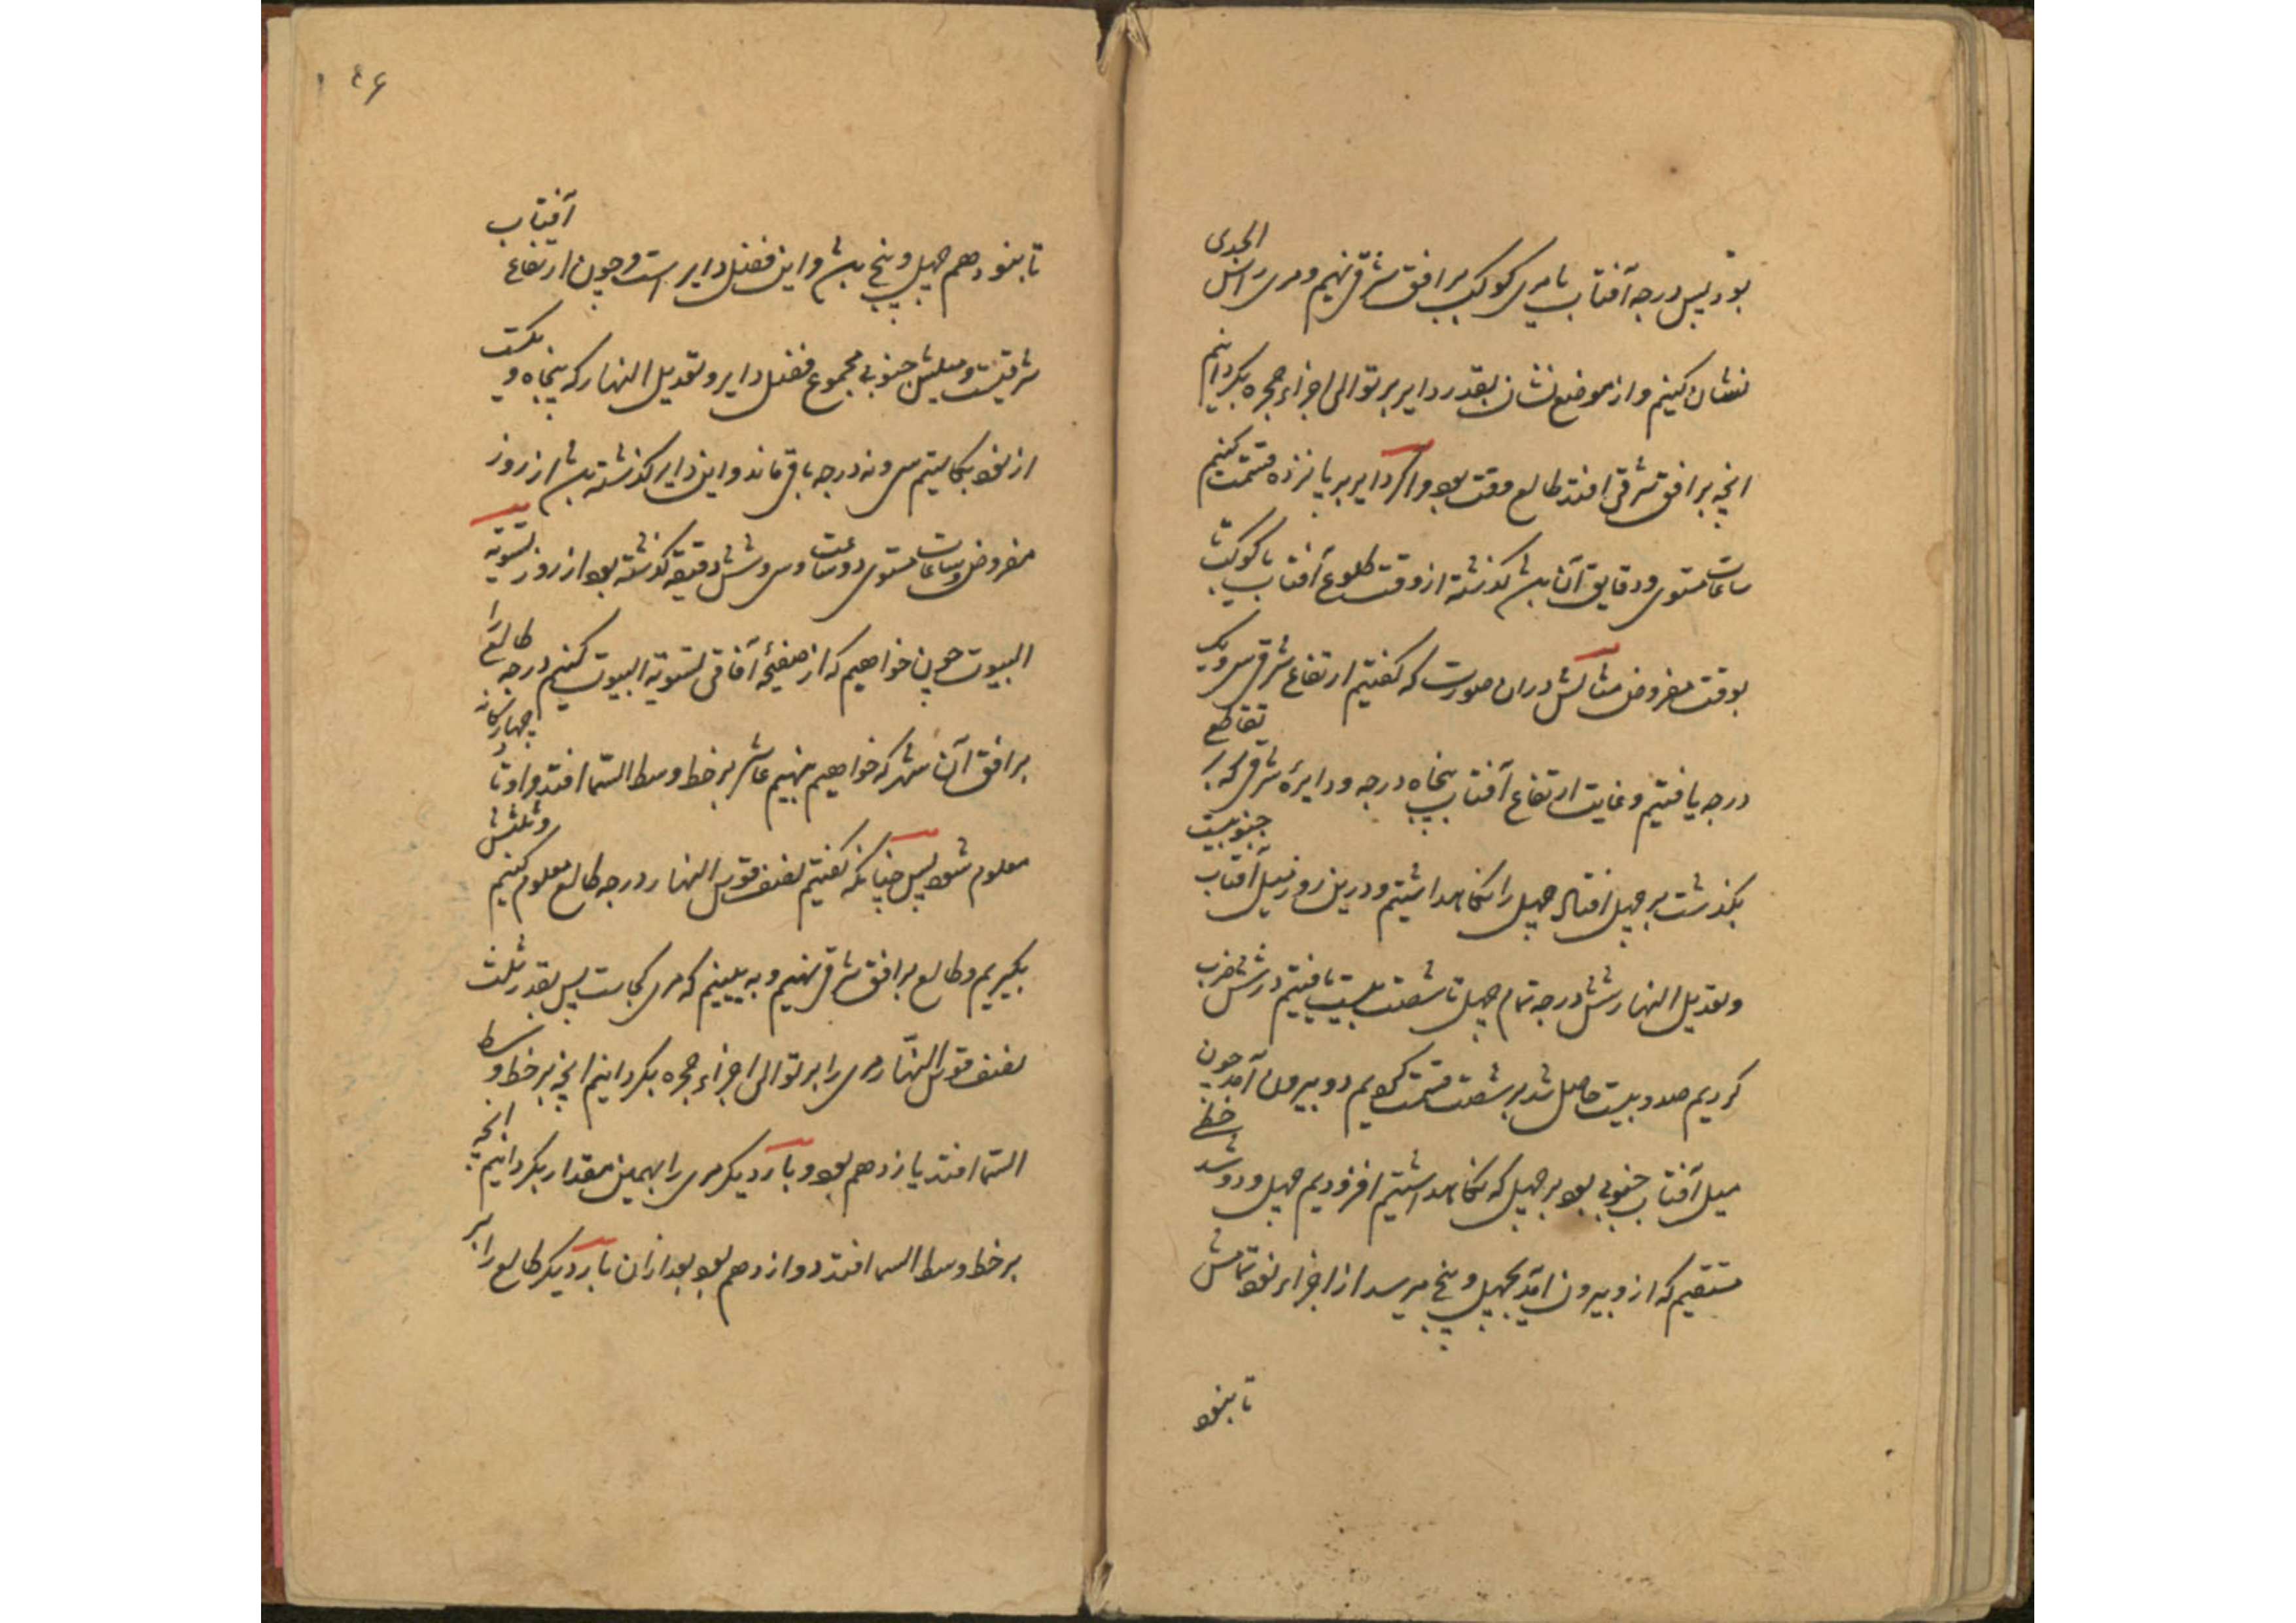 بود پس درجه آفتاب یا مری کوکب بر افق شرقی نهیم و مری راس الجدی
نشان کنیم و از موضع نشان بقدر دایر بر توالی اجزاء حجره بگردانیم
انچه بر افق شرقی افتد طالع وقت بود و اگر دایر بر پانزده قسمت کنیم
ساعات مستوی و دقایق آن باشد گذشته از وقت طلوع آفتاب یا کوکب تا
بوقت مفروض مثالش دران صورت که گفتیم ارتفاع شرقی سی و یک
درجه یافتیم و غایت ارتفاع آفتاب پنجاه درجه و دایرهٔ شرقی که بر تقاطع
بگذشت بر چهل افتاد چهل را نگاه داشتیم و درین روز میل آفتاب جنوبیست
و تعدیل النهار شش درجه تمام چهل تا شصت بیست یافتیم در شش ضرب
کردیم صد و بیست حاصل شد بر شصت قسمت کردیم دو بیرون آمد چون
میل آفتاب جنوبی بود بر چهل که نگاه داشتیم افزودیم چهل و دو شد خط
مستقیم که ازو بیرون آید بچهل و پنج میرسد از اجزاء نود تمامش
تا بنود
۱۴۶
تا بنود هم چهل و پنج باشد و این فضل دایر است و چون ارتفاع آفتاب
شرقیست و میلش جنوبی مجموع فضل دایر و تعدیل النهار که پنجاه و یکست
از نود بکاستیم سی و نه درجه باقی ماند و این دایر گذشته باشد از روز
مفروض و ساعات مستوی دو ساعت و سی و شش دقیقه گذشته بود از روز تسویة
البیوت چون خواهیم که از صفیحهٔ آفاقی تسویة البیوت کنیم درجه طالع را
بر افق آن شهر که خواهیم نهیم عاشر بر خط وسط السما افتد و اوتاد چهارگانه
معلوم شود پس چنانکه گفتیم نصف قوس النهار درجه طالع معلوم کنیم و ثلثش
بگیریم و طالع بر افق شرقی نهیم و به بینیم که مری کجاست پس بقدر ثلث
نصف قوس النهار مری را بر توالی اجزاء حجره بگردانیم انچه بر خط وسط
السما افتد یازدهم بود و بار دیگر مری را بهمین مقدار بگردانیم انچه
بر خط وسط السما افتد دوازدهم بود بعد ازان بار دیگر طالع را بر